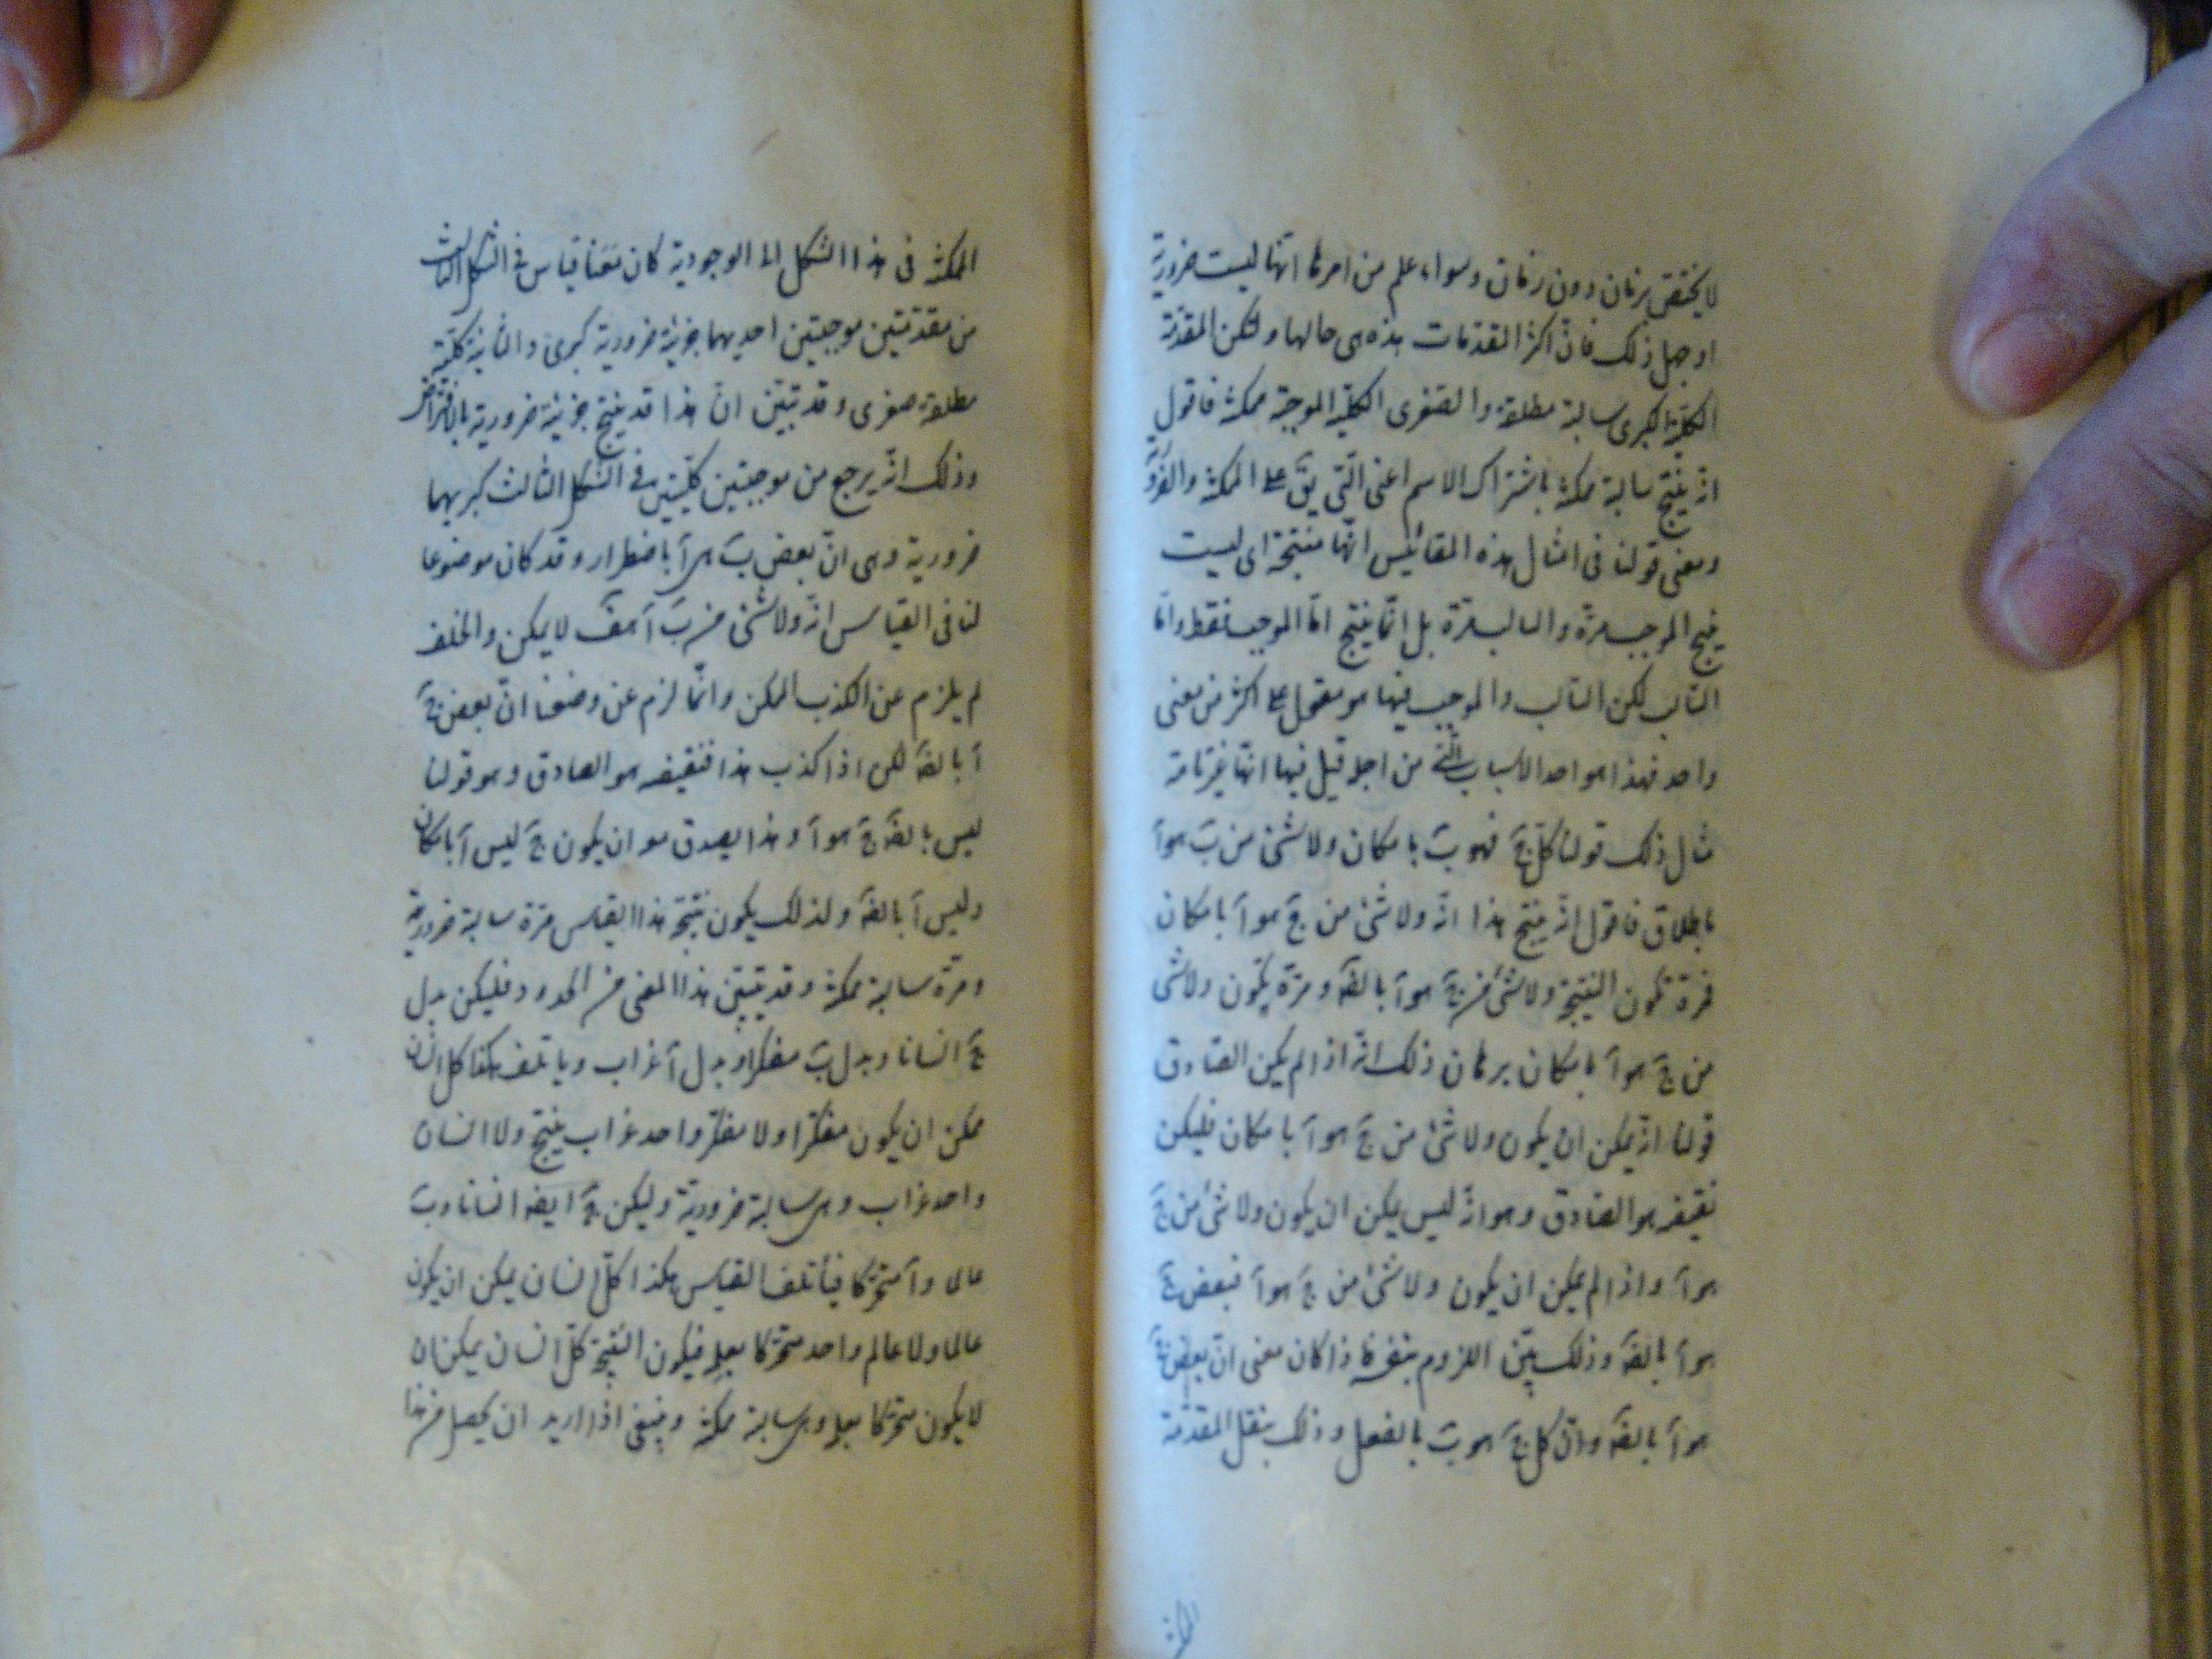 لا يختص بزمان دون زمان وسواء علم من امرها انّها ليست ضرورية
او جهل ذلك فانّ اكثر المقدمات هذه هى حالها ولتكن المقدمة
الكلّية الكبرى سالبة مطلقة والصغرى الكلّية الموجبة ممكنة فاقول
انّه ينتج سالبة ممكنة باشتراك الاسم اعنى الّتى يقَ على الممكنة والضرورية
ومعنى قولنا فى امثال هذه المقائيس انّها منتجة اى ليست
ينتج الموجب مرّة والسالب مرّة بل انّما ينتج امّا الموجب فقط وامّا
السّالب لكن السّالب والموجب فيها هو مقول على اكثر من معنى
واحد فهذا هو احد الاسباب الّتى من اجلها قيل فيها انّها غير تامة
مثال ذلك قولنا كلّ جَ فهو بَ بامكان ولا شئ من بَ هو آ
باطلاق فاقول انّه ينتج هذا انّه ولا شئ من جَ هو آ بامكان
فمرّة تكون النتيجة ولا شئ من جَ هو آ بالضرَ ومرّة يكون ولا شئ
من جَ هو آ بامكان برهان ذلك انّه اذا لم يكن الصّادق
قولنا انّه يمكن ان يكون ولا شئ من جَ هو آ بامكان فليكن
نقيضه هو الصّادق وهو انّه ليس يمكن ان يكون ولا شئ من جَ
هو آ واذا لم يمكن ان يكون ولا شئ من جَ هو آ فبعض جَ
هو آ بالضرَ وذلك بيّن اللزوم بنفسه فاذا كان معنى انّ بعض جَ
هو آ بالضرَ وانّ كل جَ هو بَ بالفعل وذلك بنقل المقدّمة
الممكنة
الممكنة فى هذا الشكل الى الوجودية كان معنا قياس فى الشكل الثالث
من مقدمتين موجبتين احديهما جزئية ضرورية كبرى والثانية كلّية
مطلقة صغرى وقد تبيّن انّ هذا قد ينتج جزئية ضرورية
وذلك انّه يرجع من موجبتين كلّيتين فى الشكل الثالث كبريهما
ضرورية وهى انّ بعض بَ هى آ باضطرار وقد كان موضوعا
لنا فى القياس انّه ولا شئ من بَ آ هفَ لا يمكن والخلف
لم يلزم عن الكذب الممكن وانّما لزم عن وضعنا انّ بعض جَ
آ بالضرَ لكن اذا كذب هذا فنقيضه هو الصادق وهو قولنا
ليس بالضرَ جَ هو آ وهذا يصدق مع ان يكون جَ ليس آ بامكان
وليس آ بالضرَ ولذلك يكون نتيجة هذا القياس مرّة سالبة ضرورية
ومرّة سالبة ممكنة وقد يتبيّن هذا المعنى من الحدود فليكن بدل
جَ انسانا وبدل بَ مفكرا وبدل آ غراب ويأتلف هكذا كل انسان
ممكن ان يكون مفكّرا ولا مفكّر واحد غراب ينتج ولا انسان
واحد غراب وهى سالبة ضروريّة وليكن جَ ايضَ انسانا وبَ
عالما وآ متحرّكا فيأتلف القياس هكذا كلّ انسان يمكن ان يكون
عالما ولا عالم واحد متحرّكا فيكون النتيجة كلّ انسان يمكن ان
لا يكون متحرّكا وهى سالبة ممكنة وينبغى اذا اريد ان يحصل من هذا